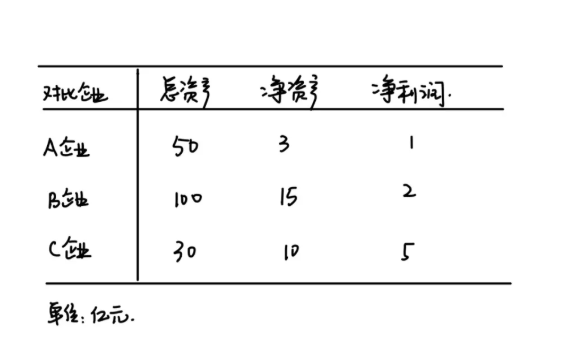 对比企业 总资产 净资产 净利润.
A企业 50 3 1
B企业 100 15 2
C企业 30 10 5
单位:亿元.